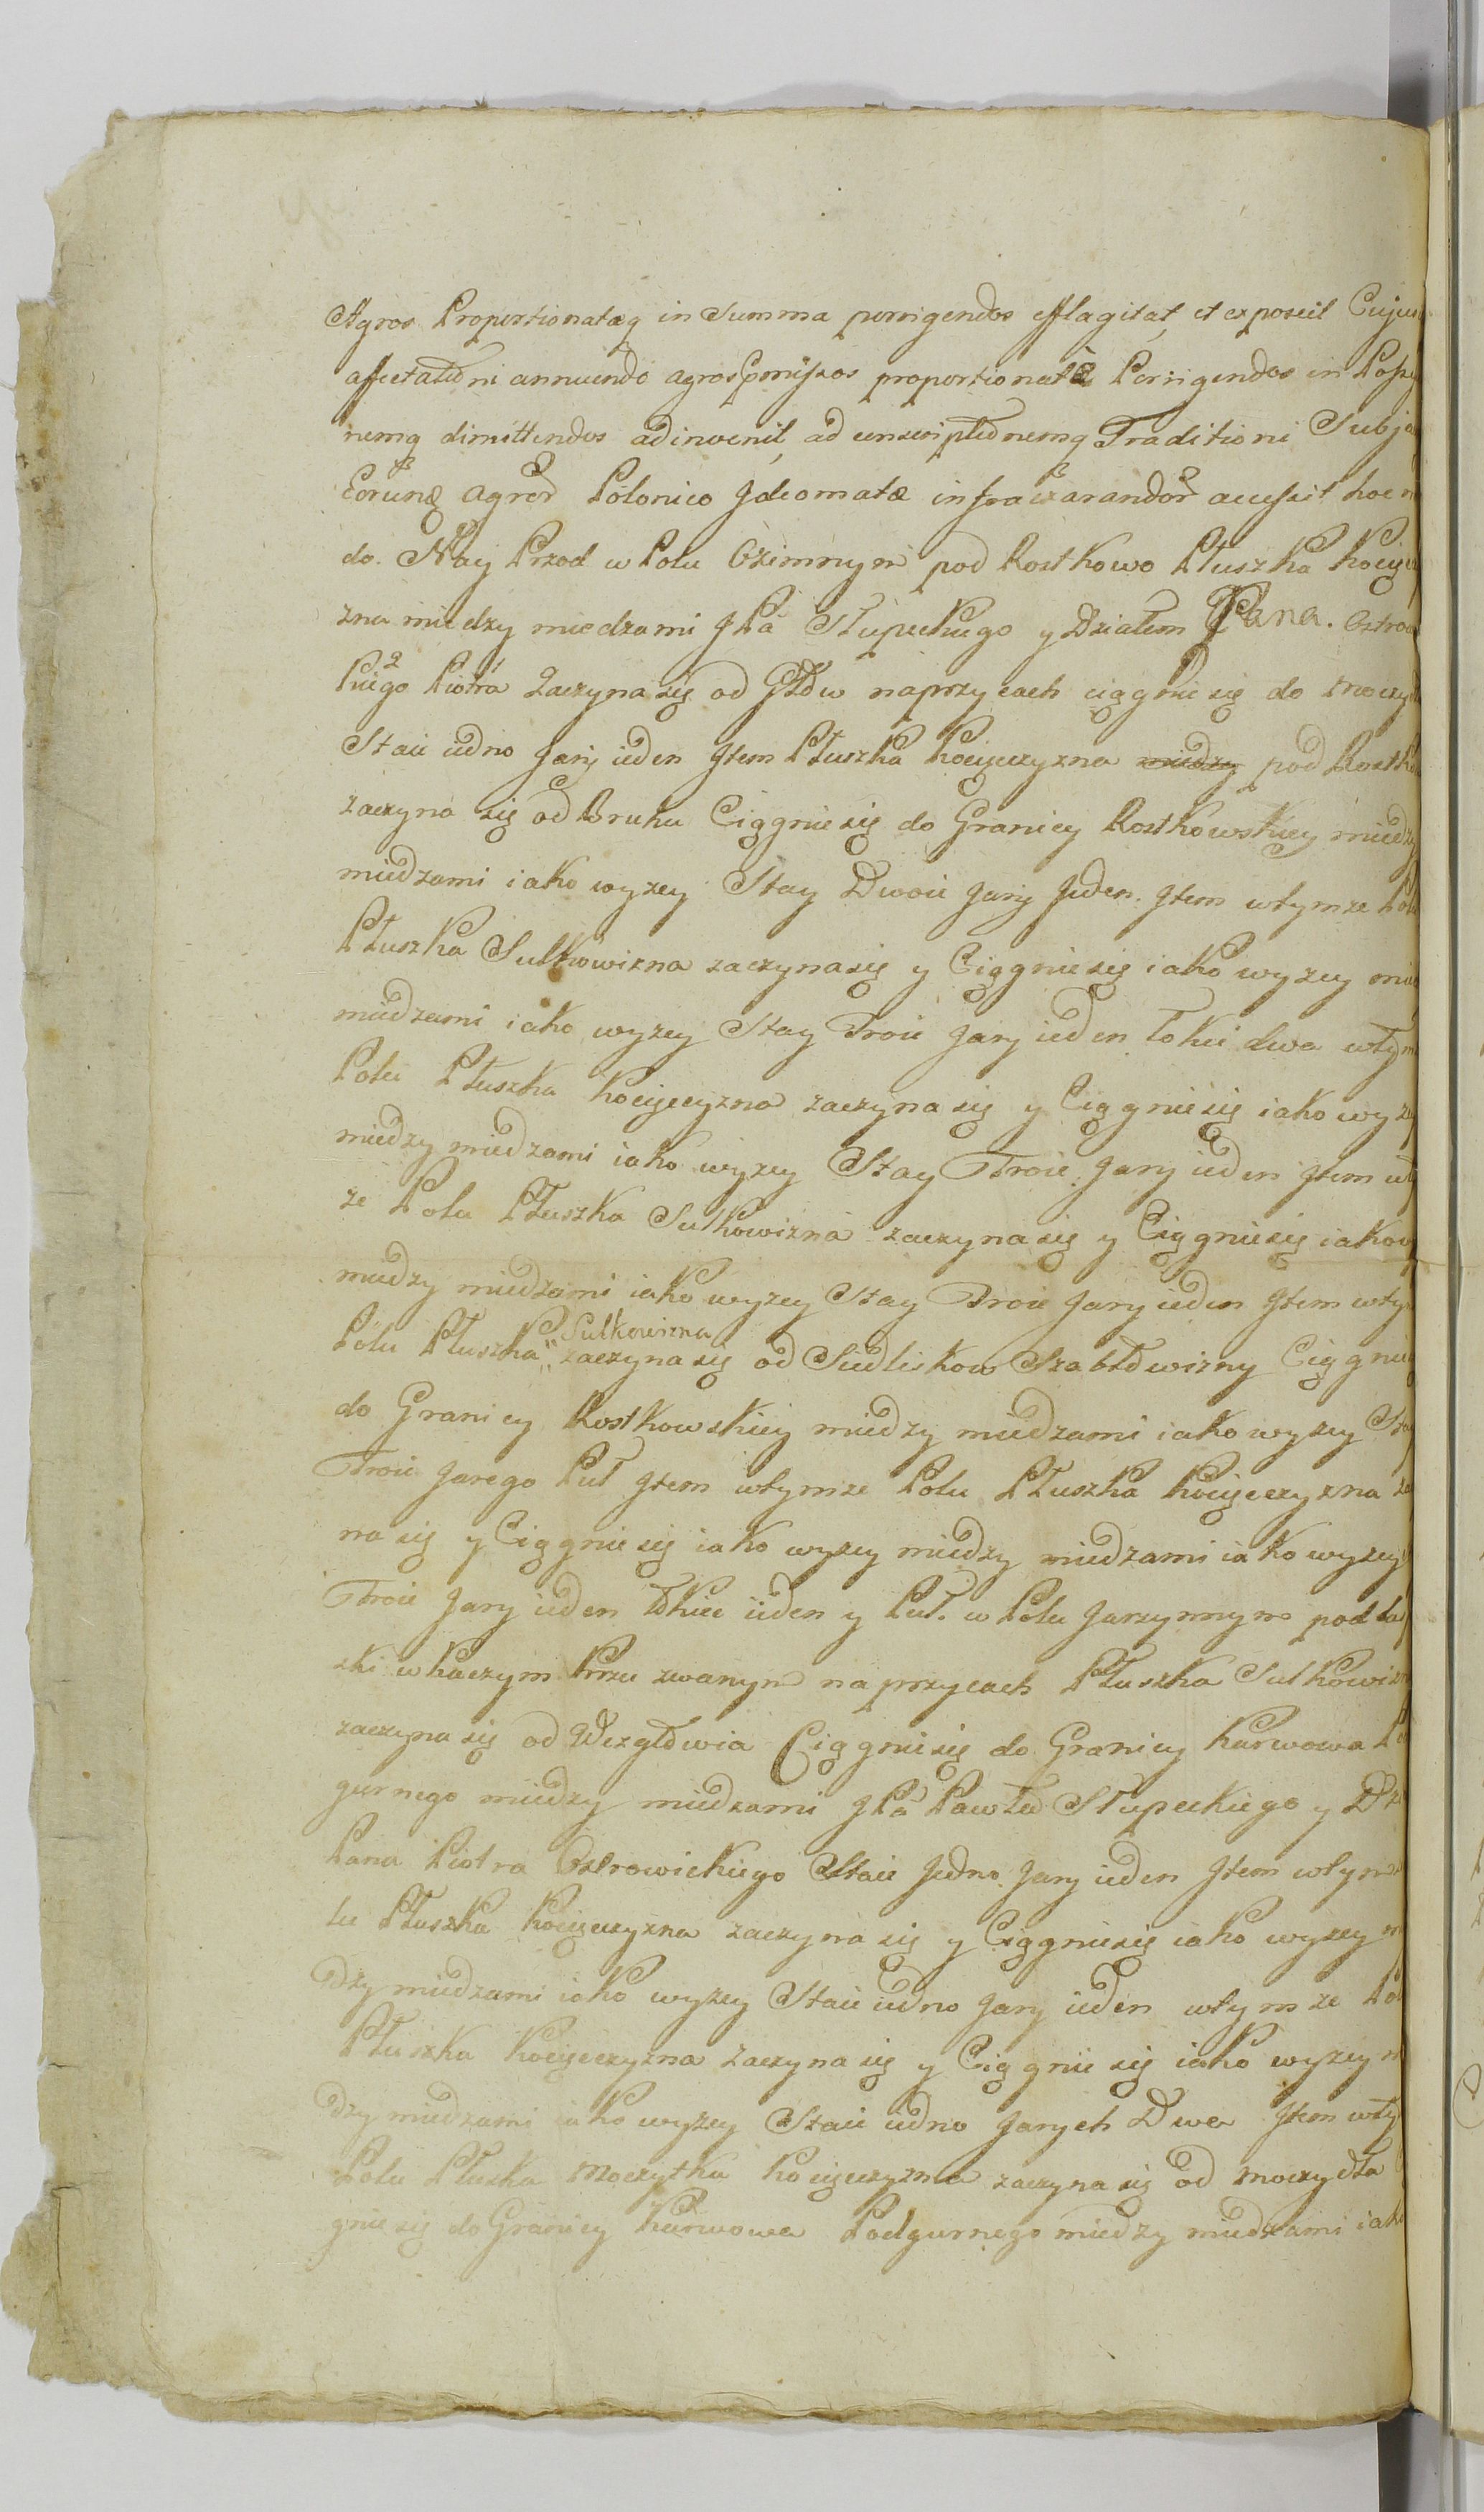 Agros Proportionatæq in Summa porrigendos efflagitat, et exposcit Cujus
affectatōni annuendo agros pmissos proportionatæ Porrigendos in Poss
nemq dimittendos adinvenit, ad conscriptōnemq Traditioni Subje
Eorunq agror Polonico Jdeomatæ infraexarandor accessit hoc m
do. Nay Przod w Polu Ozimnym pod Rostkowo Płuszka Kocięcz
zna miedzy miedzami JPa Słupeckiego y Działem Pana. Ostrow
kiego Piotra Zaczyna się od Głōw naprzycach ciągnie się do moczy
Staie iedno Jary ieden Jtem Płuszka Kocięczyzna miedzy pod Rostko
zaczyna się od Bruku Ciągnie się do Granicy Rostkowskiey miedzy
miedzami iako wyzey Stay Dwoie Jary Jeden. Jtem wtymze Polu
Płuszka Sulkowizna zaczyna się y Ciągnie się iako wyzey mie
miedzami iako wyzey Stay Troie Jary ieden łokci dwa wtym
Polu Płuszka Kocięczyzna zaczyna się y Ciągnie się iako wyzey
miedzy miedzami iako wyzey Stay Troie Jary ieden Jtem wty
ze Polu Płuszka Sulkowizna zaczyna się y Ciągnie się iakow
miedzy miedzami iako wyzey Stay Troie Jary ieden Jtem wtym
Sulkowizna
Polu Płuszka zaczyna się od Siedliskow Szabłōwizny Ciągnie
do Granicy Rostkowskiey miedzy miedzami iako wyzey Stay
Troie Jarego Puł Jtem wtymze Polu Płuszka Kocięczyzna za
na się y Ciągnie się iako wyzey miedzy miedzami iako wyzey
Troie Jary ieden łōkiec ieden y Puł. w Polu Jarzynnym pod
ski w Kaczym Krzu zwanym naprzycach Płuszka Sulkowizn
zaczyna się od Wezgłōwia Ciągnie się do Granicy Kurwowa Po
gurnego miedzy miedzami JPa Pawła Słupeckiego y Dz
Pana Piotra Ostrowickiego Staie Jedno Jary ieden Jtem wtym
lu Płuszka Kocięczyzna zaczyna się y Ciągnie się iako wyzey m
dzy miedzami iako wyzey Staie iedno Jary ieden wtymze Pol
Płuszka Kocięczyzna zaczyna się y Ciągnie się iako wyzey m
dzy miedzami iako wyzey Staie iedno Jarych Dwa Jtem wty
Polu Płuska Moczytka Kocięczyzna zaczyna się od moczydła
gnie się do Granicy Kurwowa Podgurnego miedzy miedzami iako